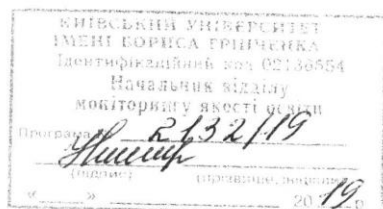 КИЇВСЬКИЙ УНІВЕРСИТЕТ
ІМЕНІ БОРИСА ГРІНЧЕНКА
Ідентифікаційний код 02136554
Начальник відділу
моніторингу якості освіти
Програма № 2132/19
(підпис) (прізвище, ініціали)
« » 2019 р.